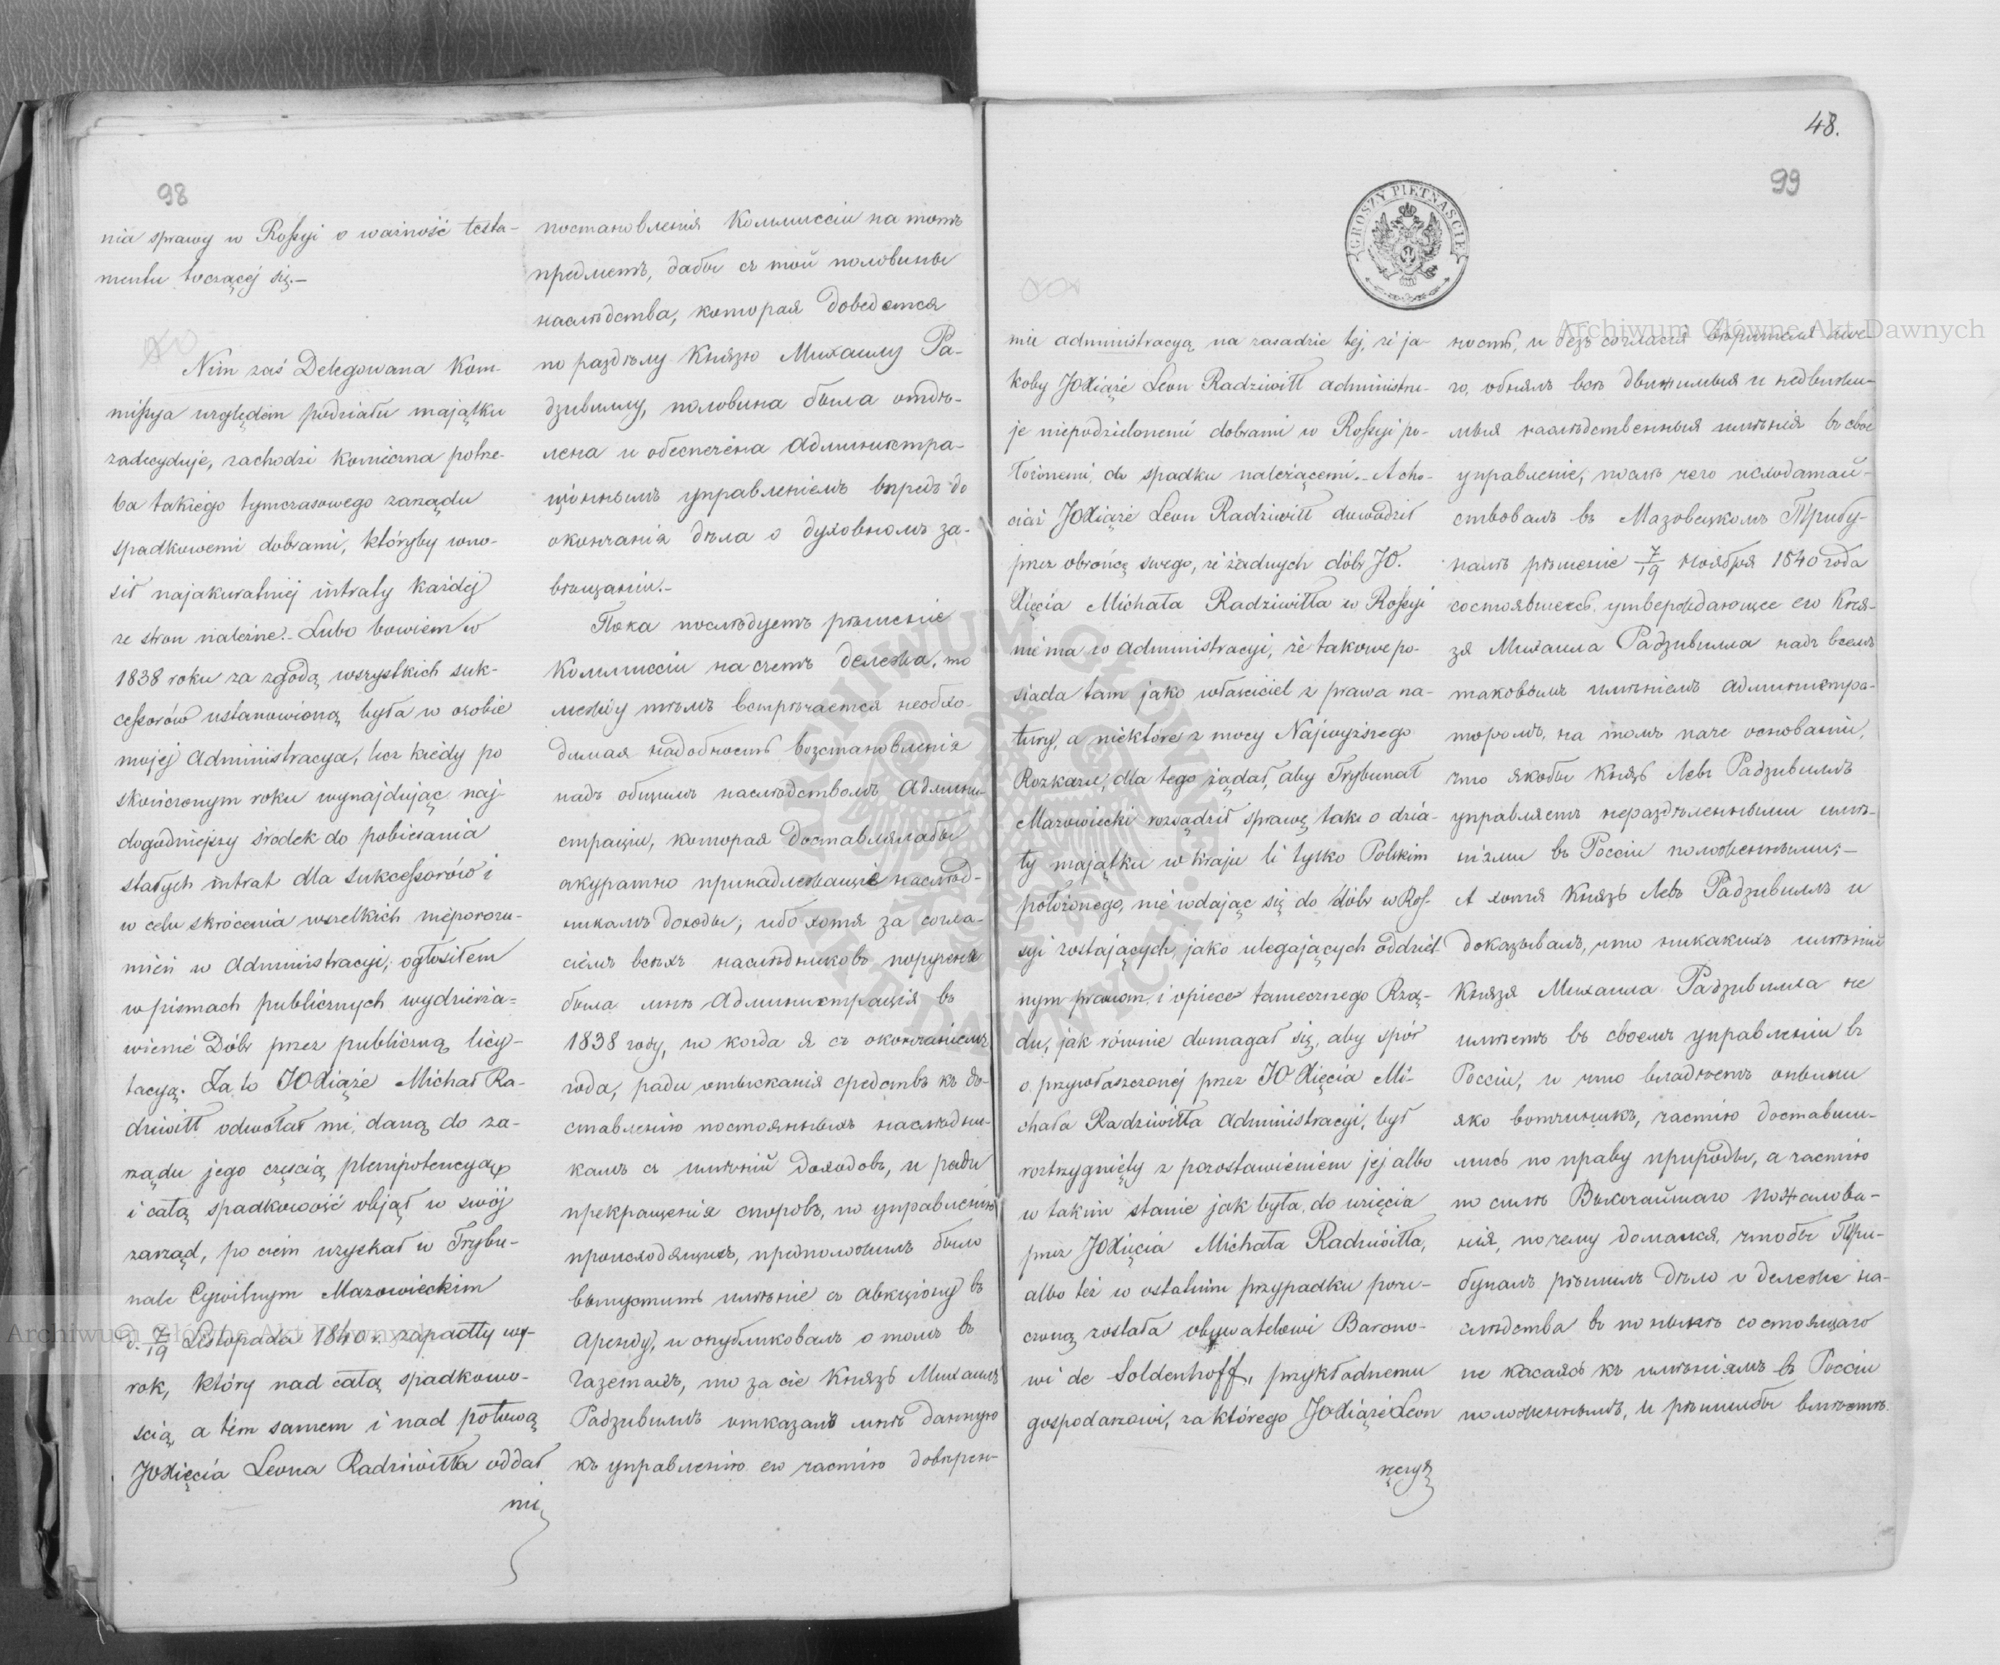 98
nia sprawy w Rossyi o ważność testa-
mentu toczącej się.-
Nim zaś Delegowana Kom-
missya względem podziału majątku
zadecyduje, zachodzi konieczna potrze-
ba takiego tymczasowego zarządu
spadkowemi dobrami, któryby wno-
sił najakuratniej intraty każdej
ze stron należne.- Lubo bowiem w
1838 roku za zgodą wszystkich suk-
cessorów ustanowioną była w osobie
mojej Administracya, lecz kiedy po
skończonym roku wynajdując naj-
dogodniejszy środek do pobierania
stałych intrat dla sukcessorów i
w celu skrócenia wszelkich nieporozu-
mień w Administracyi, ogłosiłem
w pismach publicznych wydzierża-
wienie Dóbr przez publiczną licy-
tacyą. Za to JOXiąże Michał Ra-
dziwiłł odwołał mi daną do za-
rządu jego częścią plenipotencyą
i całą spadkowość objął w swój
zarząd, po czém uzyskał w Trybu-
nale Cywilnym Mazowieckim
d. 7/19 Listopada 1840 r. zapadły wy-
rok, który nad całą spadkowo-
ścią, a tém samem i nad połową
JOXięcia Leona Radziwiłła oddał
mu
постановленія Коммиссіи на тотъ
предметъ, дабы съ той половины
наслѣдства, которая доведется
по раздѣлу Князю Михаилу Ра-
дзивиллу, половина была отдѣ-
лена и обеспечена Администра-
ціоннымъ управленіемъ впредь до
окончанія дѣла о духовномъ за-
вѣщаніи.-
Пока послѣдуетъ рѣшеніе
Коммиссіи насчетъ дележа, то
между тѣмъ встрѣчается необхо-
димая надобность возстановленія
надъ общимъ наслѣдствомъ Админи-
страціи, которая доставлялабы
акуратно принадлежащіе наслѣд-
никамъ доходы; ибо хотя за согла-
сіемъ всѣхъ наслѣдниковъ поручена
была мнѣ Администрація въ
1838 году, но когда я съ окончаніемъ
года, ради отысканія средствъ къ до-
ставленію постоянныхъ наслѣдни-
камъ съ имѣній доходовъ, и ради
прекращенія споровъ, по управленію
происходящихъ, предположилъ было
выпустить имѣніе съ авкціону въ
Аренду, и опубликовалъ о томъ въ
Газетахъ, то за сіе Князь Михаилъ
Радзивиллъ отказалъ мнѣ данную
къ управленію его частію доверен-
48.
99
GROSZY PIĘTNAŚCIE
nie administracyą na zasadzie tej, że ja-
koby JOXiąże Leon Radziwiłł administru-
je niepodzielonemi dobrami w Rossyi po-
łożonemi, do spadku należącemi.- A cho-
ciaż JOXiąże Leon Radziwiłł dowodził
przez obrońcę swego, że żadnych dóbr JO.
Xięcia Michała Radziwiłła w Rossyi
nie ma w administracyi, że takowe po-
siada tam jako właściciel z prawa na-
tury, a niektóre z mocy Najwyższego
Rozkazu, dla tego żądał, aby Trybunał
Mazowiecki rozsądził sprawę tak o dzia-
ły majątku w kraju li tylko Polskim
położonego, nie wdając się do dóbr w Ros-
syi zostających, jako ulegających oddziel-
nym prawom i opiece tamecznego Rzą-
du, jak równie domagał się, aby spór
o przywłaszczonej przez JOXięcia Mi-
chała Radziwiłła Administracyi, był
roztrzygnięty z pozostawieniem jej albo
w takim stanie jak była do wzięcia
przez JOXięcia Michała Radziwiłła,
albo też w ostatnim przypadku poru-
czoną została obywatelowi Barono-
wi de Soldenhoff, przykładnemu
gospodarzowi, za którego JOXiąże Leon
ręczył
ность, и безъ согласія вѣрителя мое-
го, обнялъ всѣ движимыя и недвижи-
мыя наслѣдственныя имѣнія въ свое
управленіе, послѣ чего исходатай-
ствовалъ въ Мазовецкомъ Трибу-
налѣ рѣшеніе 7/19 Ноября 1840 года
состоявшееся, утверждающее его Кня-
зя Михаила Радзивилла надъ всемъ
таковымъ имѣніемъ Администра-
торомъ, на томъ паче основаніи,
что якобы Князь Левъ Радзивиллъ
управляетъ нераздѣленными имѣ-
ніями въ Россіи положенными;-
А хотя Князь Левъ Радзивиллъ и
доказывалъ, что никакихъ имѣній
Князя Михаила Радзивилла не
имѣетъ въ своемъ управленіи въ
Россіи, и что владѣетъ оными
яко вотчинникъ, частію доставши-
мись по праву природы, а частію
по силѣ Высочайшаго пожалова-
нія, почему домался, чтобы Три-
буналъ рѣшилъ дѣло о дележе на-
слѣдства въ
не касаясь къ имѣніямъ въ Россіи
положеннымъ, и рѣшилбы вмѣстѣ
Archiwum Główne Akt Dawnych
Archiwum Główne Akt Dawnych
ARCHIWUM GŁÓWNE AKT DAWNYCH